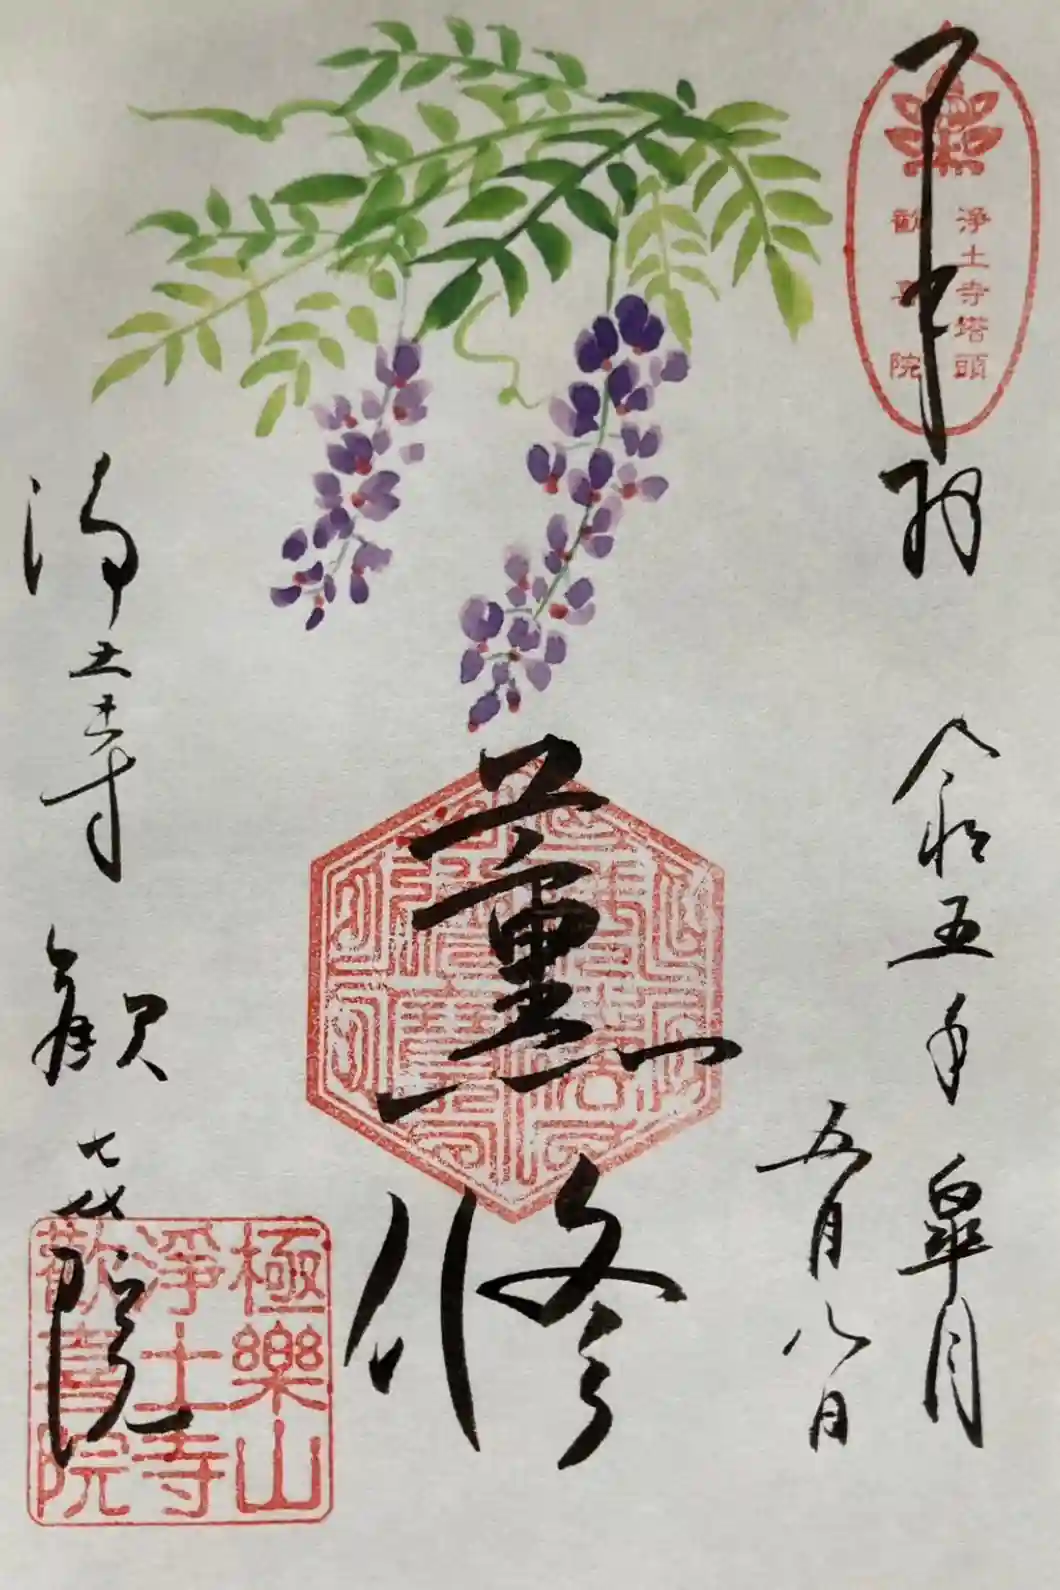 奉拝
令和五年皐月
五月八日
薫修
浄土寺
歓喜院
浄土寺塔頭
歓喜院
極樂山
淨土寺
歡喜院